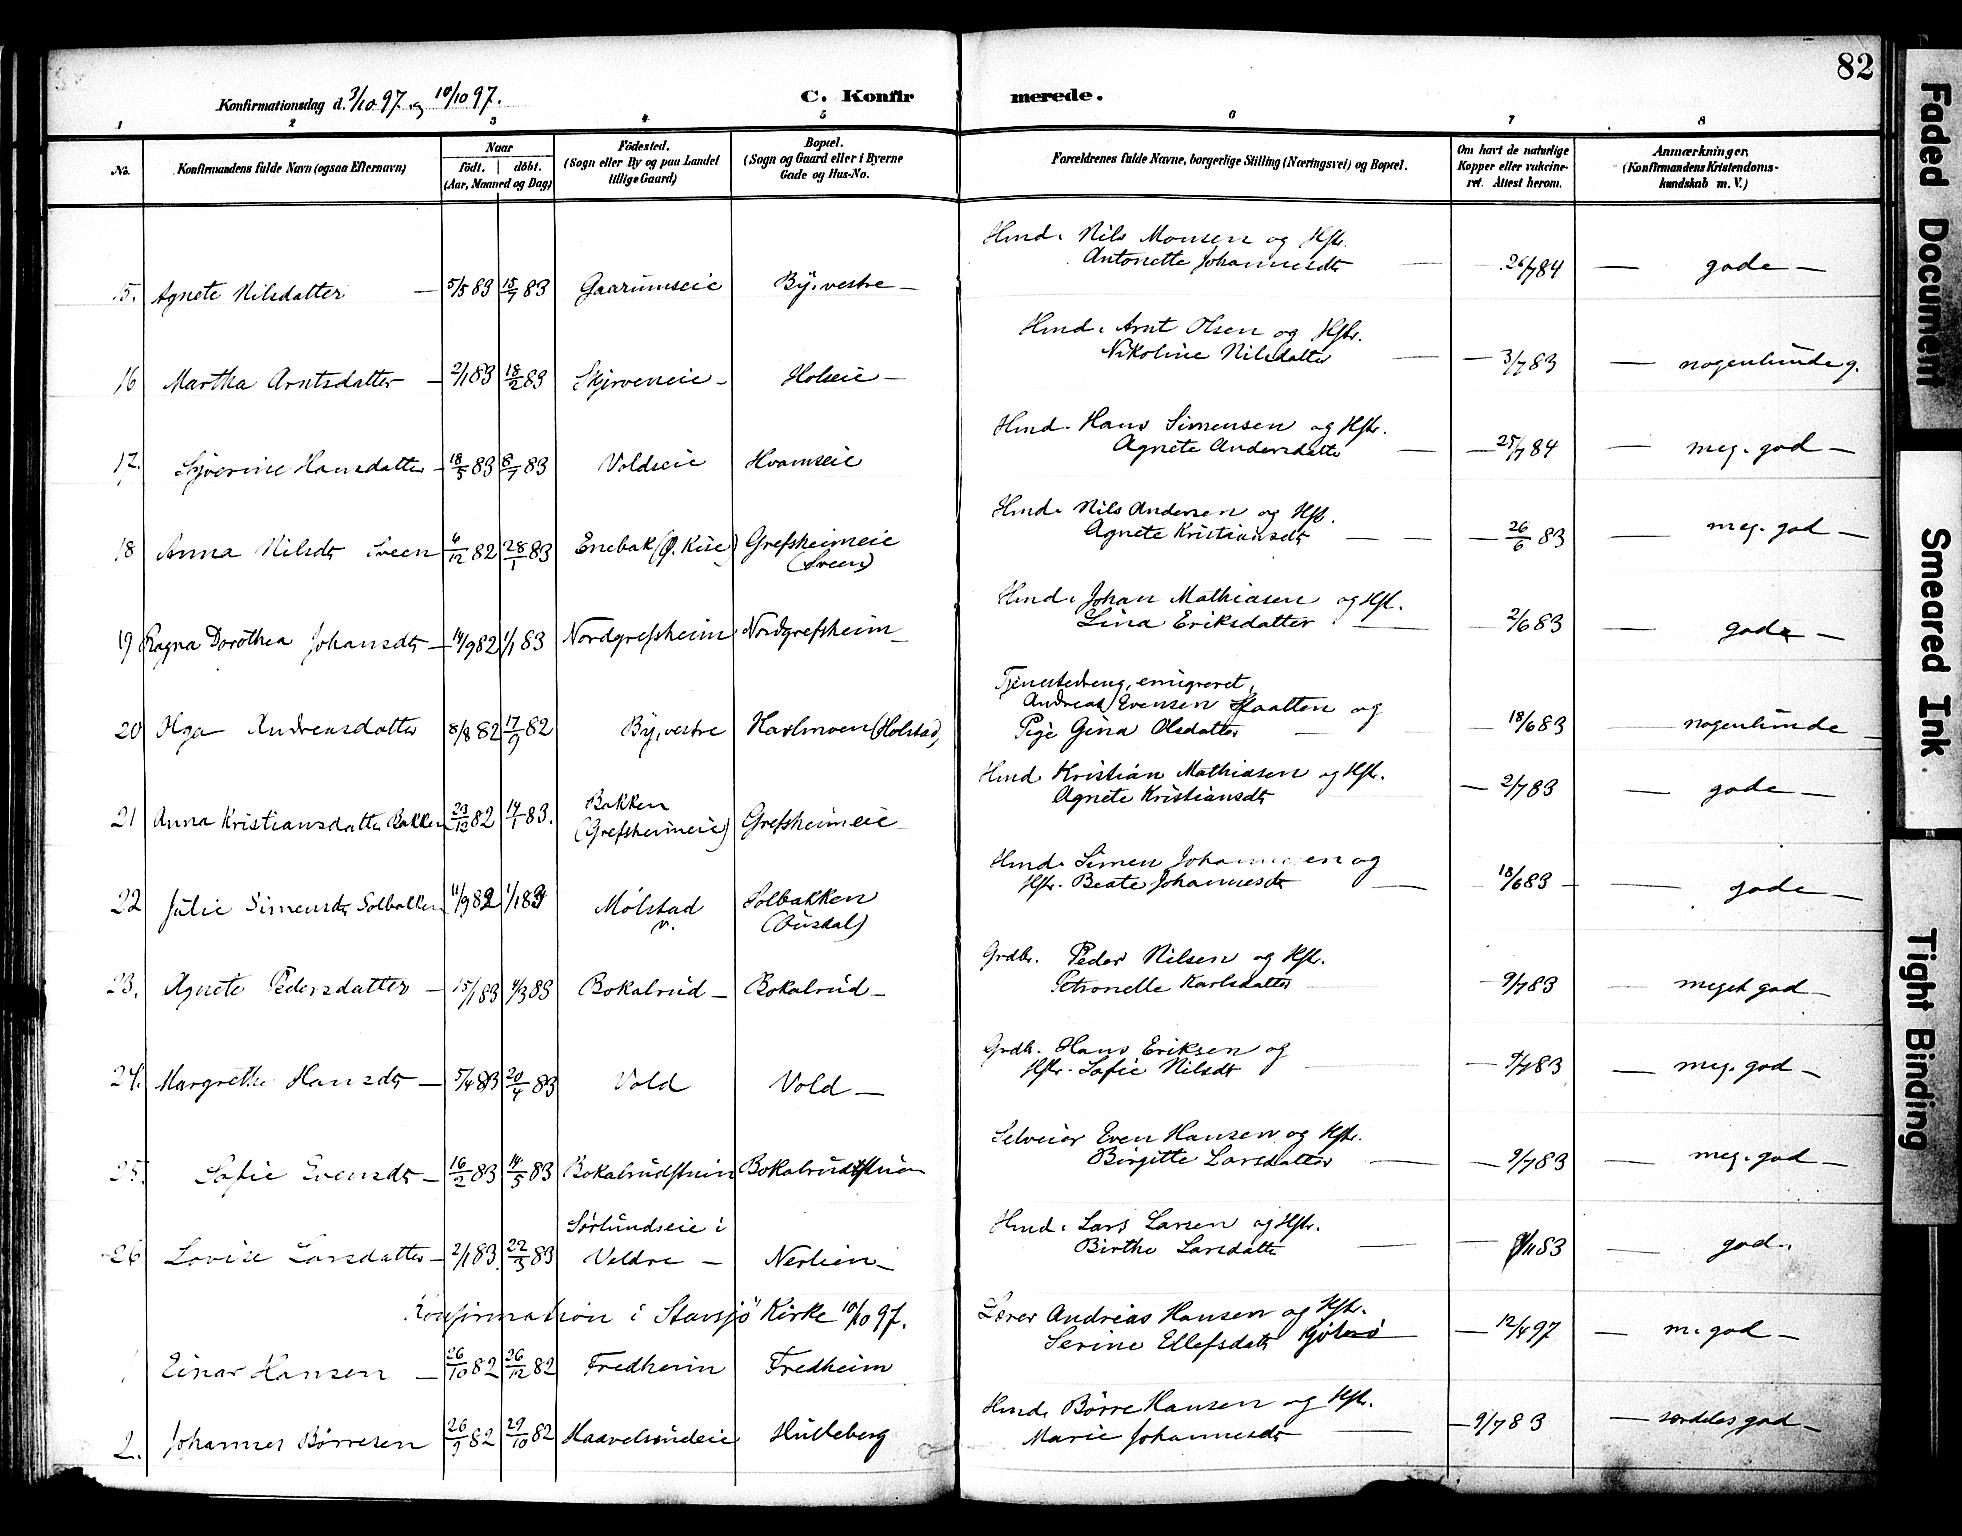 82
Konfirmationsdag d. 3/10 97. og 10/10 97.
C. Konfirmerede.
1 2 3 4 5 6 7 8
No.
Konfirmandens fulde Navn (ogsaa Efternavn)
Naar
født. døbt.
(Aar, Maaned og Dag)
Fødested.
(Sogn eller By og paa Landet
tillige Gaard)
Bopæl.
(Sogn og Gaard eller i Byerne
Gade og Hus-No.
Forældrenes fulde Navne, borgerlige Stilling (Næringsvei) og Bopæl.
Om havt de naturlige
Kopper eller vakcine-
ret. Attest herom.
Anmærkninger,
(Konfirmandens Kristendoms-
kundskab m. V.)
Hmd. Nils Monsen og Hstr.
Antonette Johannesdtr
15. Agnete Nilsdatter — 5/5 83 15/7 83 Gaarumseie By, vestre — 26/7 84 — gode —
Hmd. Arnt Olsen og Hstr.
Nikoline Nilsdatter
16 Martha Arntsdatter — 2/1 83 18/2 83 Skjerveneie — Holseie — 3/7 83 — nogenlunde g.
Hmd. Hans Simensen og Hstr.
Agnete Andersdatter
17. Syverine Hansdatter 18/5 83 8/7 83 Voldseie Hvamseie — 25/7 84 — meg. god —
Hmd. Nils Andersen og Hst.
Agnete Kristiansdtr
18 Anna Nilsdtr Sveen 6/12 82 28/1 83 Enebak (Ø. Kise) Grefsheimeie
(Sveen) — 26/6 83 — meg. god —
Hmd. Johan Mathiasen og Hst.
Lina Eriksdatter
19 Ragna Dorothea Johansdtr — 14/9 82 1/1 83 Nordgrefsheim Nordgrefsheim — 2/6 83 — gode —
Tjenestedreng, emigreret,
Andreas Evensen Slaatten og
Pige Gina Olsdatter
20 Olga Andreasdatter 8/8 82 17/9 82 By, vestre Havlmoen (Holstad) — 18/6 83 — nogenlunde —
Hmd. Kristian Mathiasen og Hstr.
Agnete Kristiansdtr
21 Anna Kristiansdatter Bakken 23/12 82 14/1 83. Bakken
(Grefsheimeie) Grefsheimeie — 2/7 83 — gode —
Hmd. Simen Johannesen og
Hstr. Beate Johannesdtr
22 Julie Simensdtr Solbakken 11/9 82 1/1 83 Mølstad
v. Solbakken
(Buskal) 18/6 83 — gode —
Grdbr. Peder Nilsen og Hstr.
Petronelle Karlsdatter
23. Agnete Pedersdatter — 15/1 83 4/3 83 Bokalrud — Bokalrud — 9/7 83 — meget god —
Grdbr. Hans Eriksen og
Hstr. Sofie Nilsdtr
24. Margrethe Hansdtr — 5/4 83 20/4 83 Vold Vold — 9/7 83 — meg. god —
Selveier Even Hansen og Hstr.
Birgitte Larsdatter
25. Sofie Evensdtr — 16/2 83 14/5 83 Bokalrudstuen Bokalrudstuen — 9/7 83 — meg. god —
Hmd. Lars Larsen og Hstr.
Birthe Larsdatter
26 Lovise Larsdatter — 2/1 83 22/3 83 Sørlundseie i
Veldre — Nerlien — /11 83 — god.
Konfirmation i Stavsjø Kirke 10/10 97.
Lærer Andreas Hansen og Hstr.
Serine Ellefsdatter
1 Einar Hansen — 26/10 82 26/12 82 Fredheim Fredheim — 12/4 97 — m. god —
Hmd. Børre Hansen og Hstr.
Marie Johannesdtr
2. Johannes Børresen 26/9 82 29/10 82 Haavelsrudeie Hulleberg — 9/7 83 — særdeles god —
Faded Document
Smeared Ink
Tight Binding